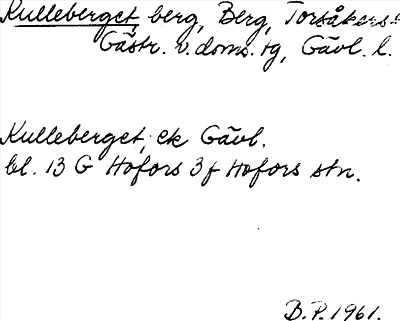 Kulleberget, berg, Berg, Torsåkers
Gästr. v. doms. tg, Gävl. l.
Kulleberget, ek Gävl.
bl. 13 G Hofors 3f Hofors stn.
B.P. 1961.